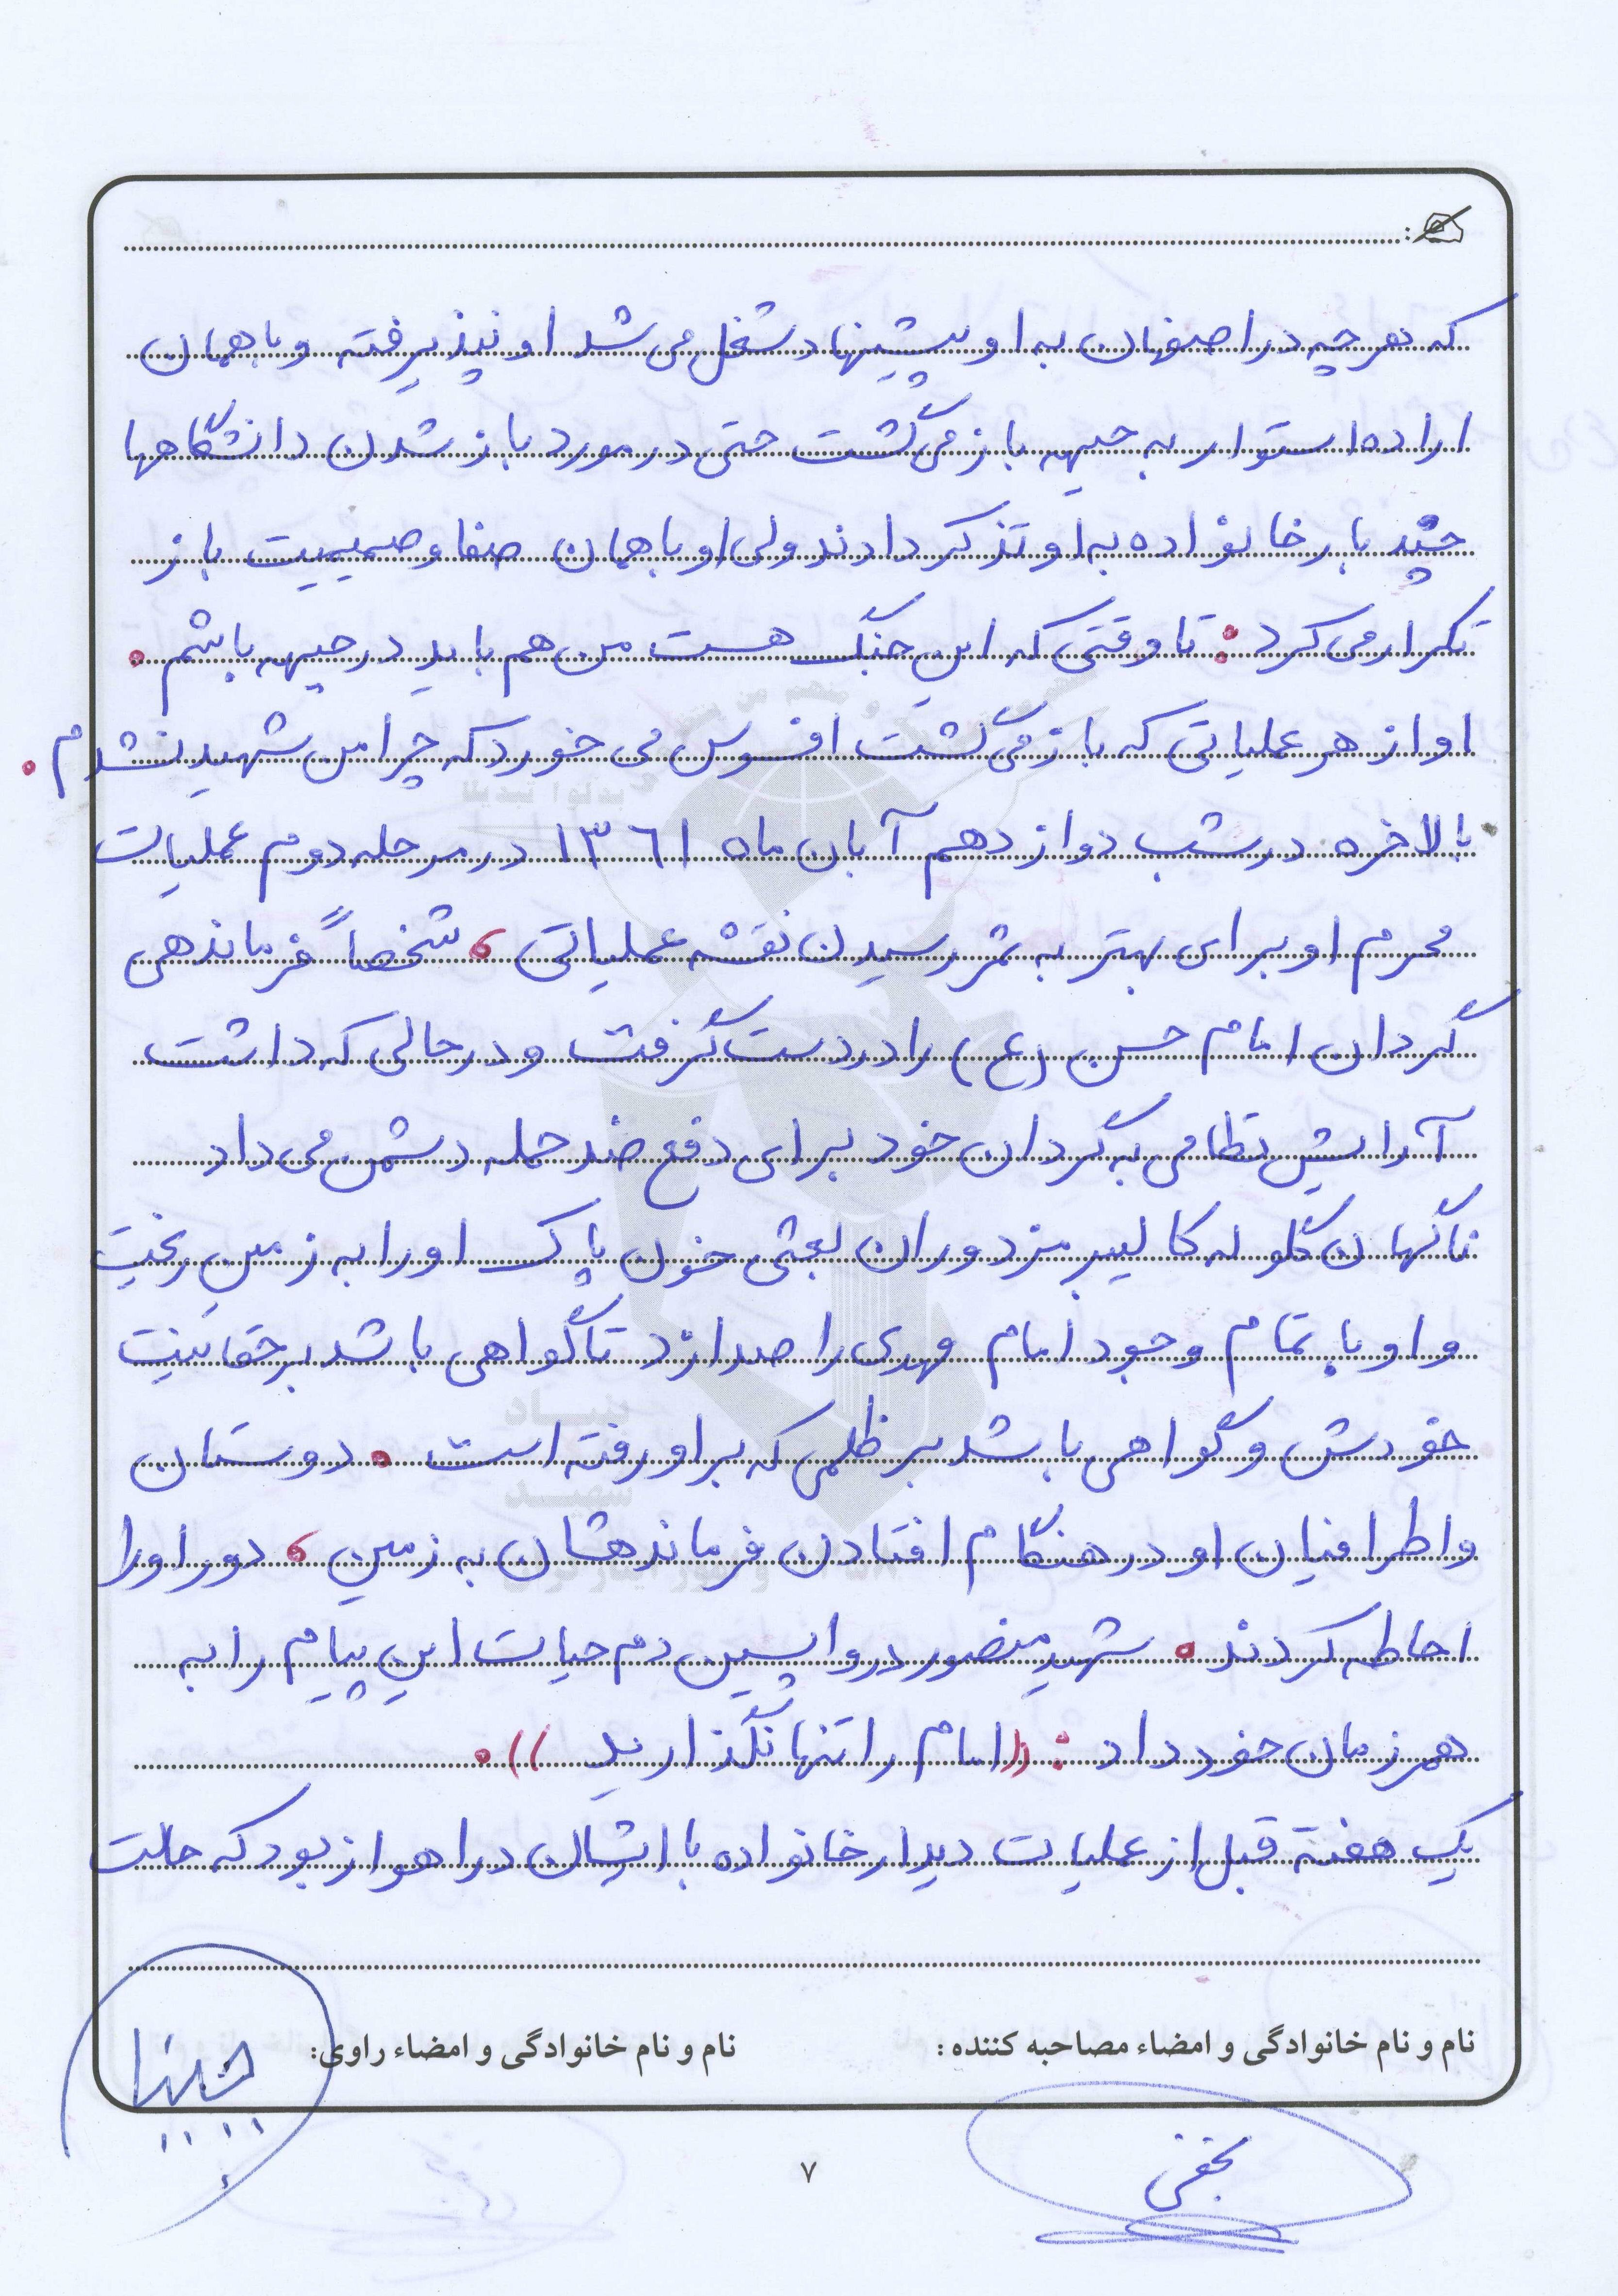 که هرچه در اصفهان به او پیشنهاد شغل می شد او نپذیرفته و با همان
اراده استوار به جبهه باز می گشت حتی در مورد باز شدن دانشگاهها
چند بار خانواده به او تذکر دادند ولی او با همان صفا و صمیمیت باز
تکرار می کرد : تا وقتی که این جنگ هست من هم باید در جبهه باشم .
او از هر عملیاتی که باز می گشت افسوس می خورد که چرا من شهید نشدم .
بالاخره در شب دوازدهم آبان ماه ۱۳٦۱ در مرحله دوم عملیات
محرم او برای بهتر به ثمر رسیدن نقشه عملیاتی ، شخصاً فرماندهی
گردان امام حسن (ع) را در دست گرفت و در حالی که داشت
آرایش نظامی به گردان خود برای دفع ضد حمله دشمن می داد
ناگهان گلوله کالیبر مزدوران بعثی خون پاک او را به زمین ریخت
و او با تمام وجود امام مهدی را صدا زد تا گواهی باشد بر حقانیت
خودش و گواهی باشد بر ظلمی که بر او رفته است . دوستان
و اطرافیان او در هنگام افتادن فرماندهشان به زمین ، دور او را
احاطه کردند . شهید منصور در واپسین دم حیات این پیام را به
همرزمان خود داد : ((امام را تنها نگذارید )) .
یک هفته قبل از عملیات دیدار خانواده با ایشان در اهواز بود که حالت
نام و نام خانوادگی و امضاء مصاحبه کننده :
نام و نام خانوادگی و امضاء راوی:
نجفی
۷
بنیاد
شهید